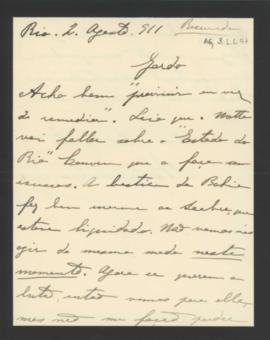 Rio. 2. Agosto. 911
Gordo
Acho bem "prevenir em vez
de remediar". Leio que o Motta
vai fallar sobre o "Estado do
Rio" Convem que o faça sem
A bestia da Bahia
fez bem
estava liquidado. Não vamos
agir do mesmo modo neste
momento. Agora se querem a
luta, então vamos para ella,
mas não me façam perder